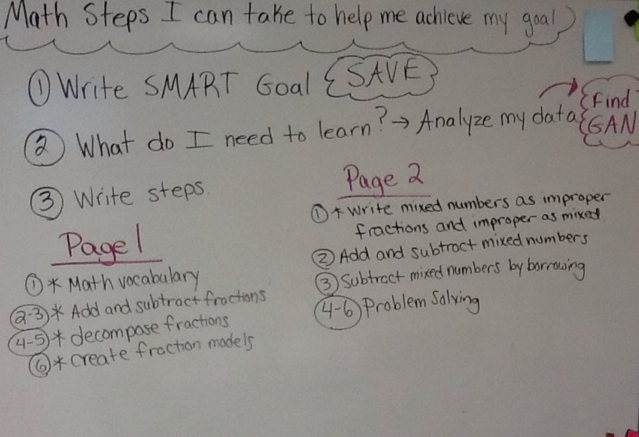 Math Steps I can take to help me achieve my goal
① Write SMART Goal SAVE
② What do I need to learn? → Analyze my data
Find
GAN
③ Write steps.
Page 1
① * Math vocabulary
2-3 * Add and subtract fractions
4-5 * decompose fractions
⑥ * Create fraction models
Page 2
① * Write mixed numbers as improper
fractions and improper as mixed
② Add and subtract mixed numbers
③ Subtract mixed numbers by borrowing
4-6 Problem Solving